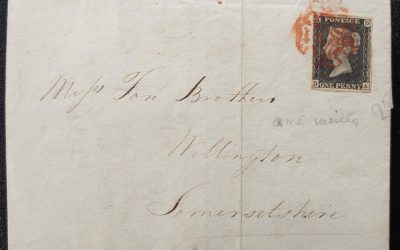 POSTAGE
ONE PENNY
A
Messrs Fox Brothers
Wellington
Somersetshire